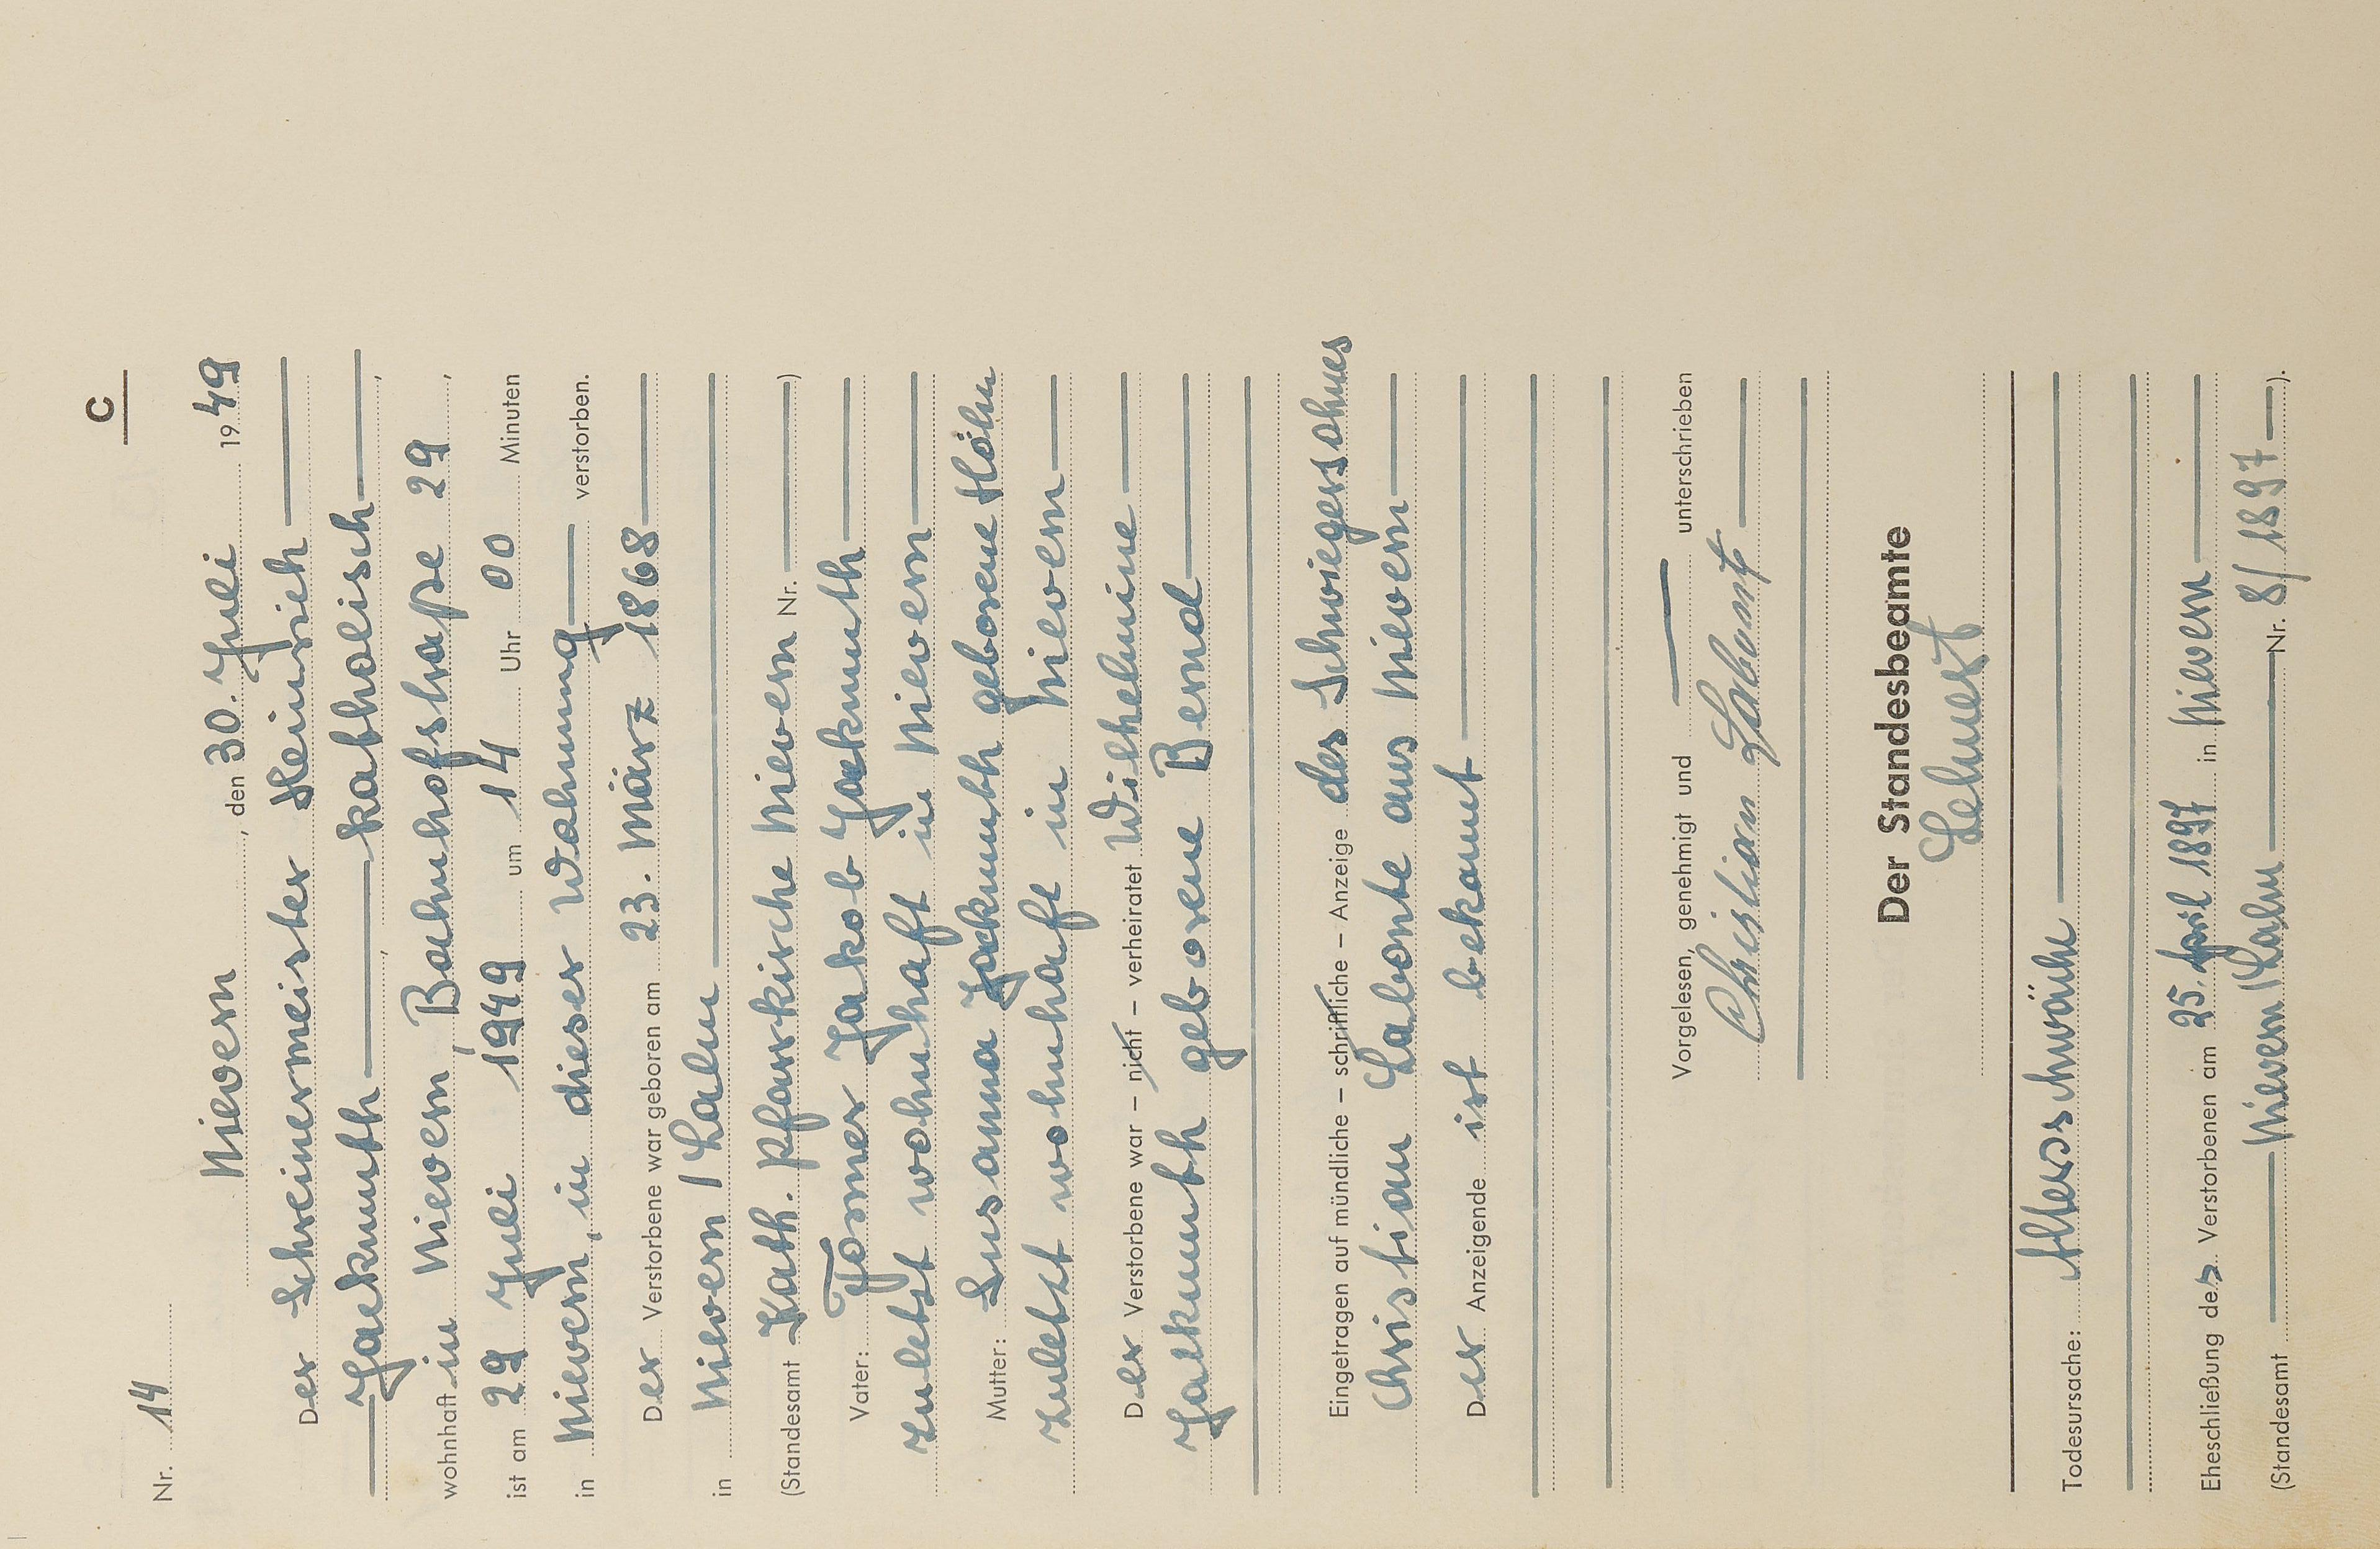 C
Nr. 14
Nievern, den 30. Juli 1949
Der Schreinermeister Heinrich
Jackmuth katholisch,
wohnhaft in Nievern, Bahnhofstraße 29,
ist am 29 Juli 1949 um 14 Uhr 00 Minuten
in Nievern, in dieser Wohnung verstorben.
Der Verstorbene war geboren am 23. März 1868
in Nievern / Lahn
(Standesamt Kath. Pfarrkirche Nievern Nr. )
Vater: Former Jakob Jackmuth
zuletzt wohnhaft in Nievern
Mutter: Susanna Jackmuth geborene Höhn
zuletzt wohnhaft in Nievern
Der Verstorbene war – nicht – verheiratet Wilhelmine
Jackmuth geborene Bernd
Eingetragen auf mündliche – schriftliche – Anzeige des Schwiegersohnes
Christian Labonte aus Nievern
Der Anzeigende ist bekannt
Vorgelesen, genehmigt und unterschrieben
Christian Labonté
Der Standesbeamte
Lehnert
Todesursache: Altersschwäche
Eheschließung des Verstorbenen am 25. April 1897 in Nievern
(Standesamt Nievern / Lahn Nr. 8/1897 ).